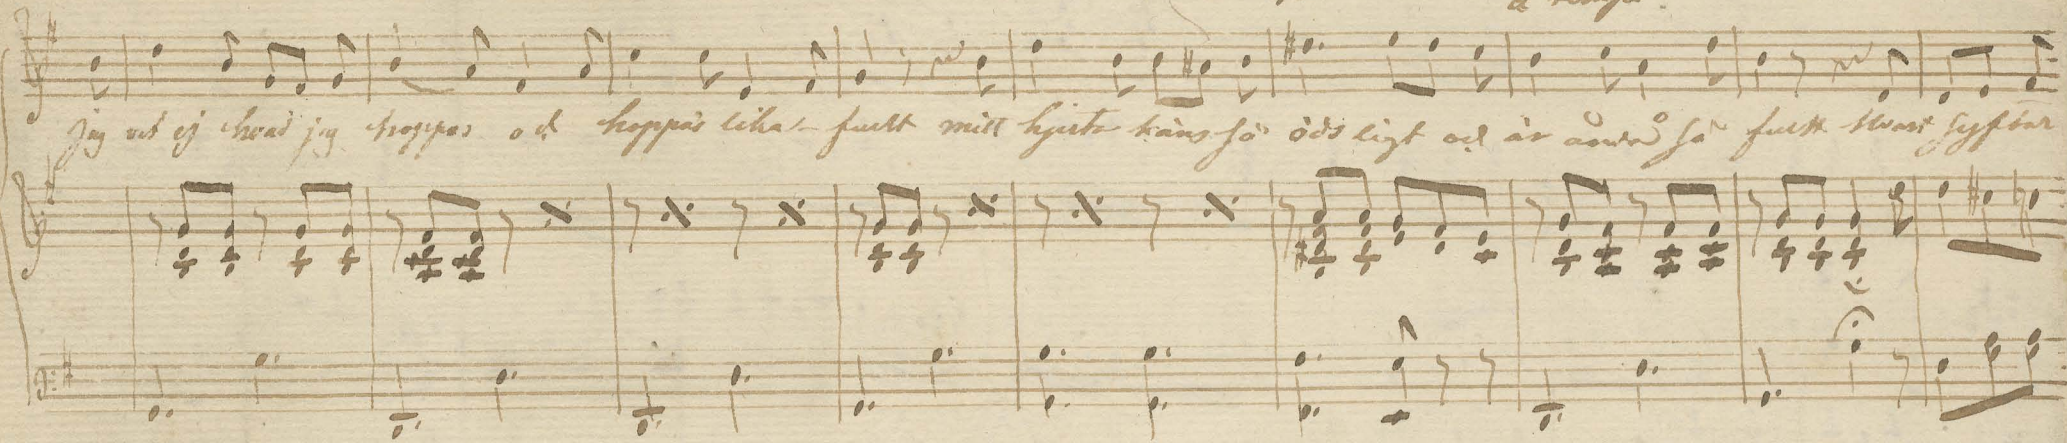 Jag vet ej hvad jag hoppas och hoppas lika-fullt mitt hjerta käns så ödsligt och är ändå så fullt Hvart syftar